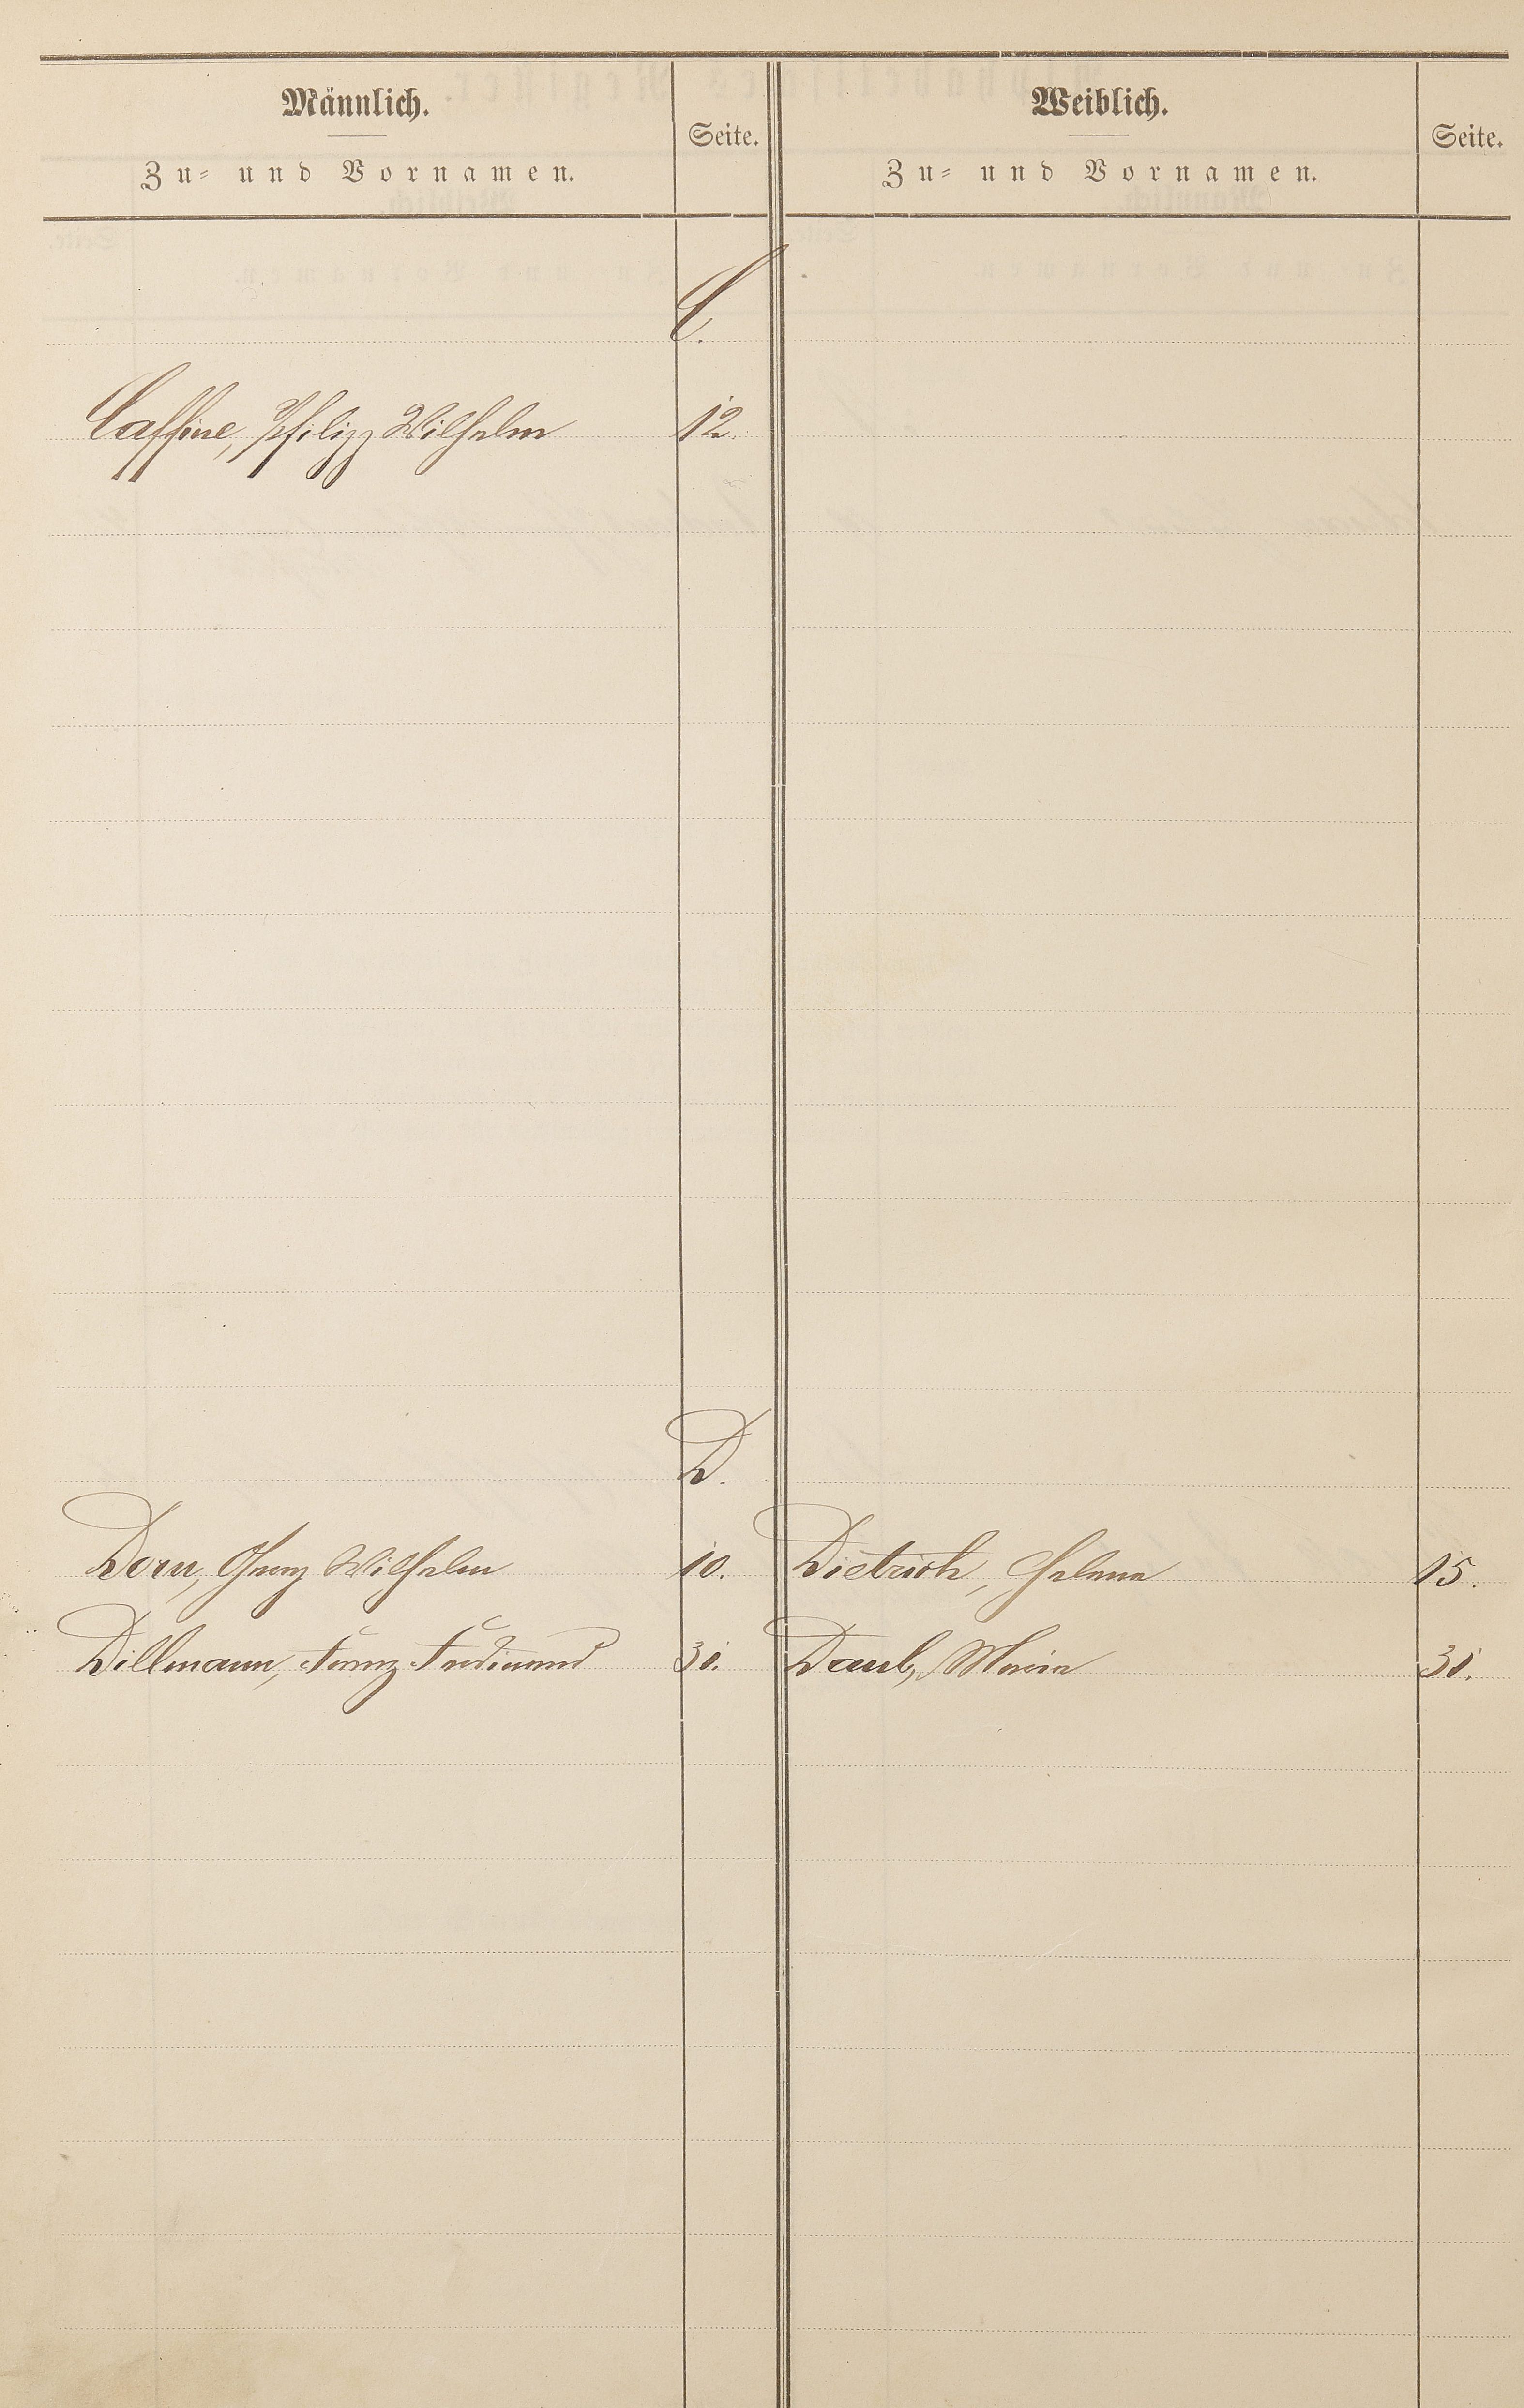 Männlich.
Zu- und Vornamen.
Seite.
Weiblich.
Zu- und Vornamen.
Seite.
C.
Caffine, Philipp Wilhelm 12.
D.
Dorn, Georg Wilhelm 10. Dietrich, Helena 15.
Dillmann, Franz Ferdinand 31. Daub, Maria 31.